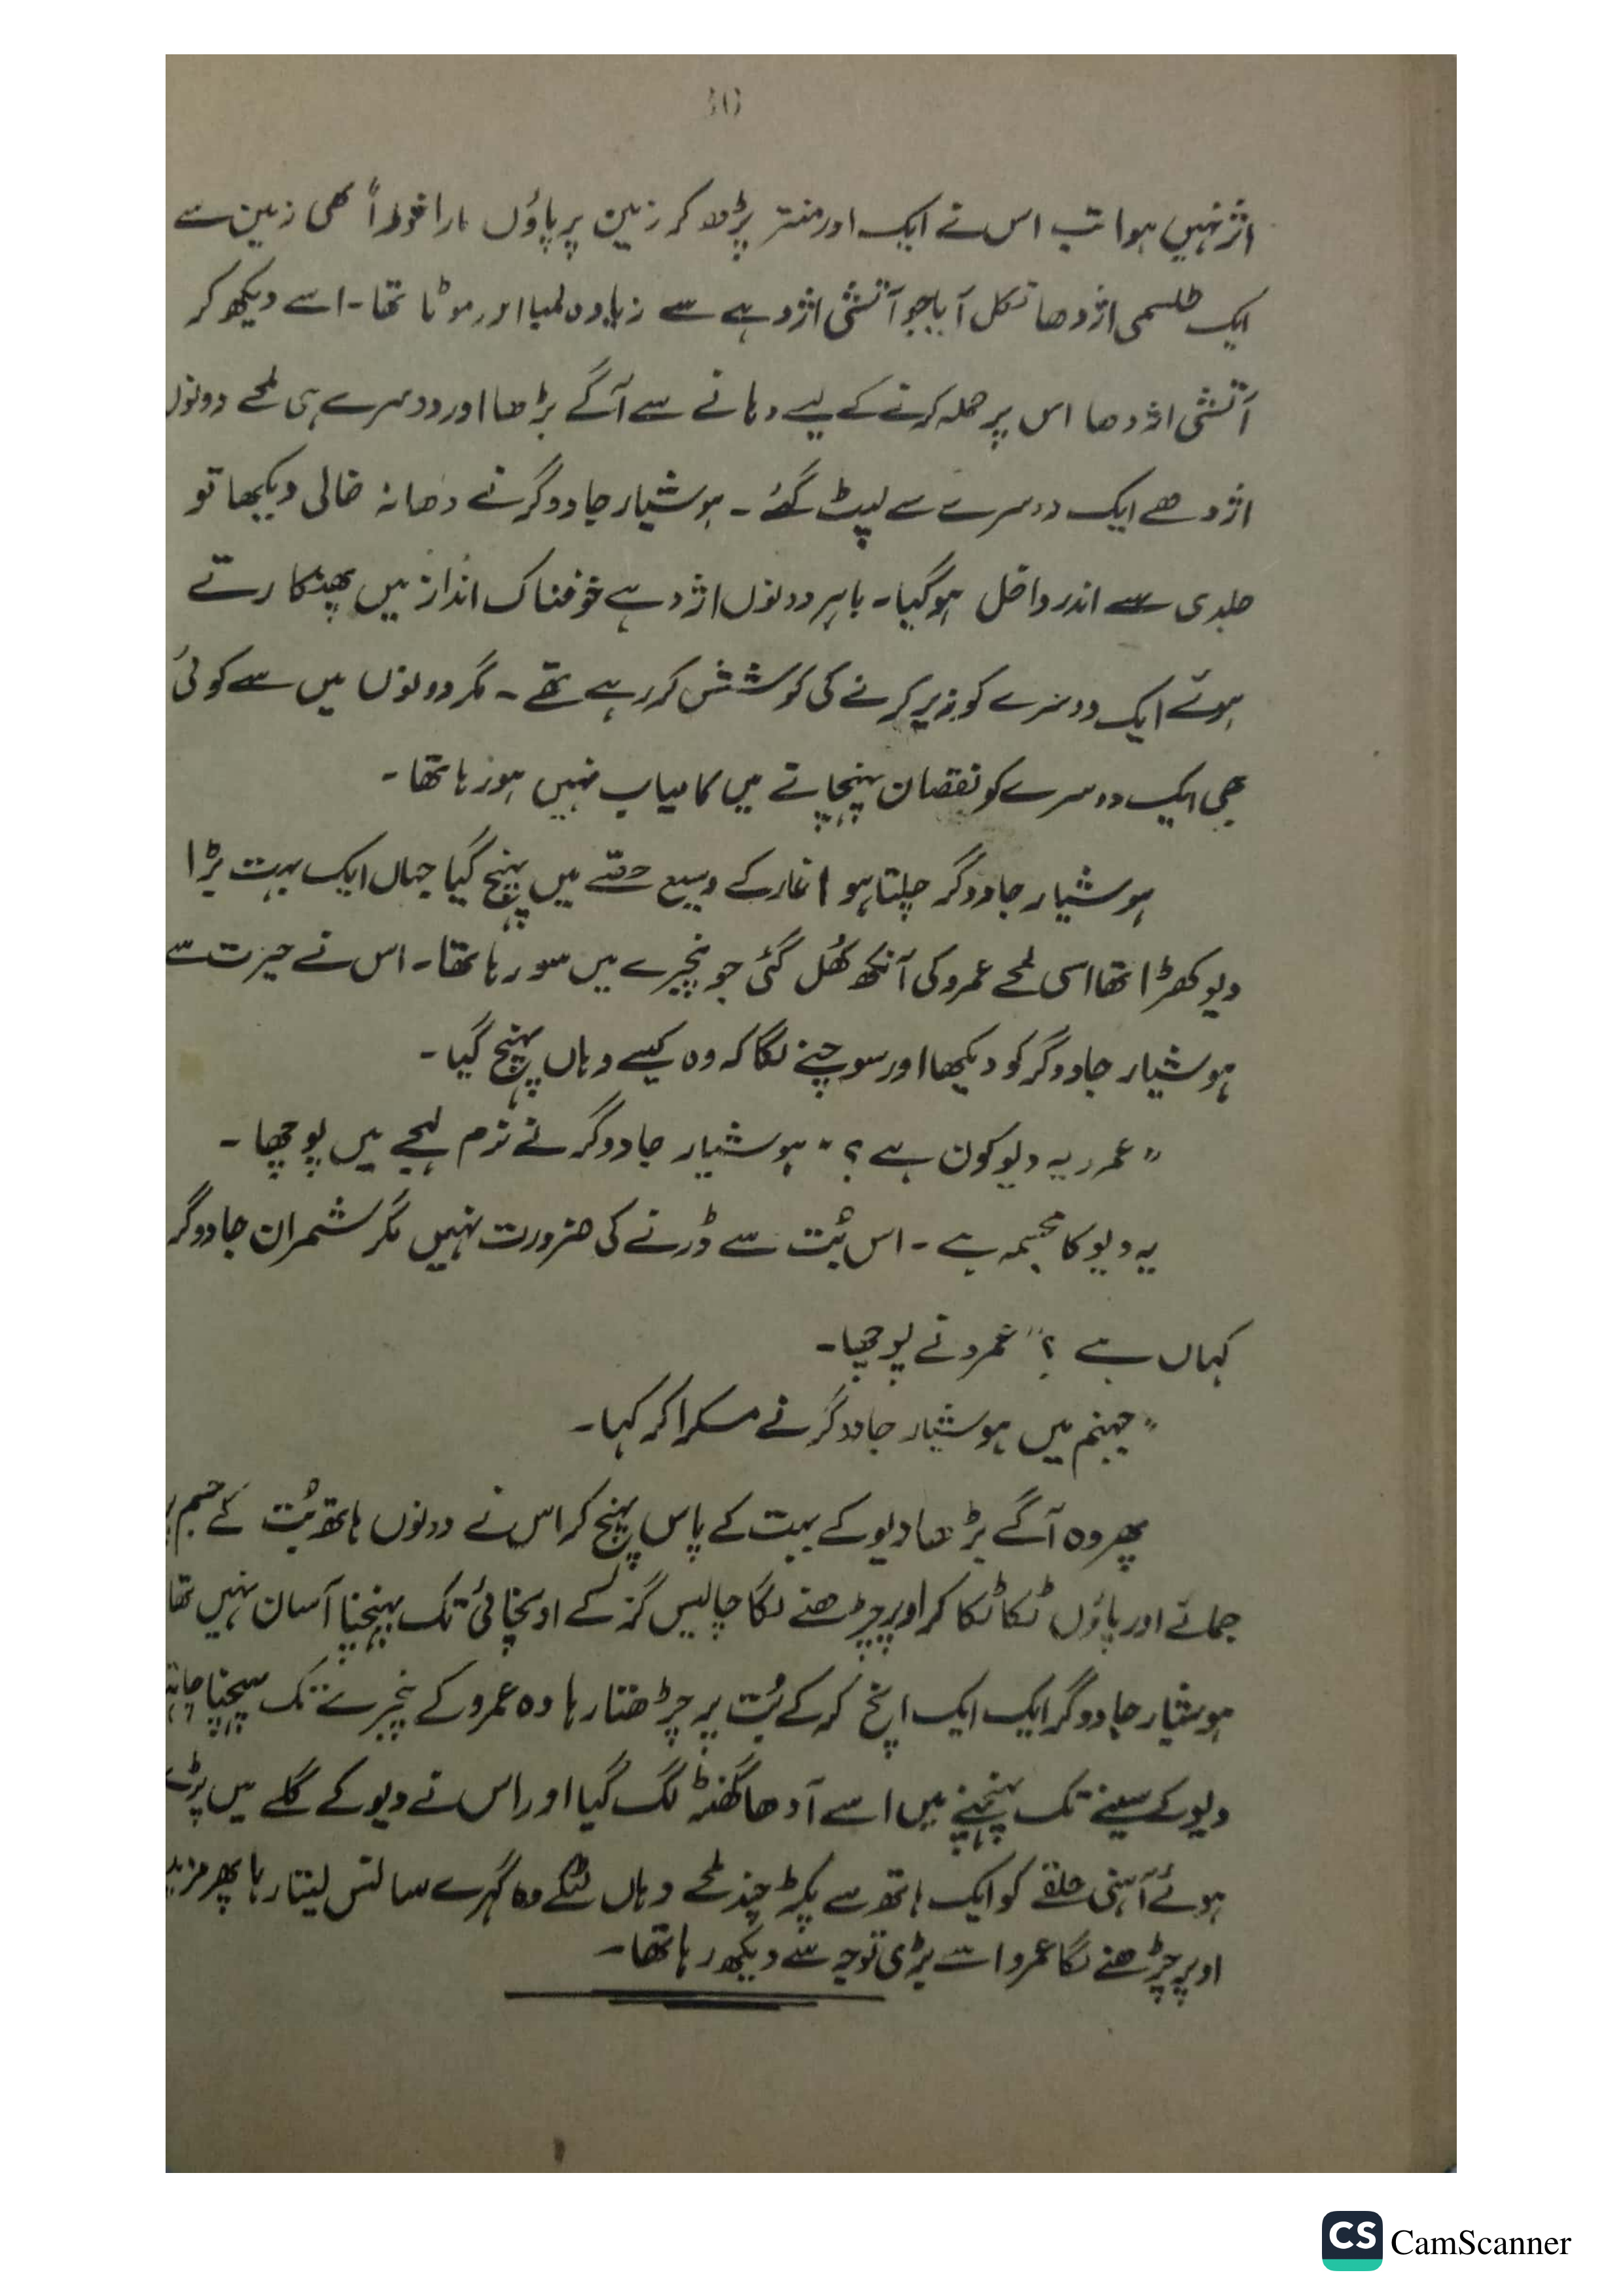 30
اثر نہیں ہوا تب اس نے ایک اور منتر پڑھ کر زمین پر پاؤں مارا فوراً ہی زمین سے
ایک طلسمی اژدھا نکل آیا جو آتشی اژدہے سے زیادہ لمبا اور موٹا تھا۔ اسے دیکھ کر
آتشی اژدھا اس پر حملہ کرنے کے لیے دہانے سے آگے بڑھا اور دوسرے ہی لمحے دونوں
اژدھے ایک دوسرے سے لپٹ گئے۔ ہوشیار جادوگر نے دھانہ خالی دیکھا تو
جلدی سے اندر داخل ہو گیا۔ باہر دونوں اژدہے خوفناک انداز میں پھنکارتے
ہوئے ایک دوسرے کو زیر کرنے کی کوشش کر رہے تھے۔ مگر دونوں میں سے کوئی
بھی ایک دوسرے کو نقصان پہنچانے میں کامیاب نہیں ہو رہا تھا۔
ہوشیار جادوگر چلتا ہوا غار کے وسیع حصّے میں پہنچ گیا جہاں ایک بہت بڑا
دیو کھڑا تھا اسی لمحے عمرو کی آنکھ کُھل گئی جو پنجرے میں سو رہا تھا۔ اس نے حیرت سے
ہوشیار جادوگر کو دیکھا اور سوچنے لگا کہ وہ کیسے وہاں پہنچ گیا۔
”عمرو یہ دیو کون ہے؟“ ہوشیار جادوگر نے نرم لہجے میں پوچھا۔
یہ دیو کا مجسمہ ہے۔ اس بُت سے ڈرنے کی ضرورت نہیں مگر شمران جادوگر
کہاں ہے؟“ عمرو نے پوچھا۔
”جہنم میں ہوشیار جادوگر نے مسکرا کر کہا۔
پھر وہ آگے بڑھا دیو کے بہت کے پاس پہنچ کر اس نے دونوں ہاتھ بُت کے جسم پر
جمائے اور پاؤں ٹکا ٹکا کر اوپر چڑھنے لگا چالیس گز کے اونچائی تک پہنچنا آسان نہیں تھا
ہوشیار جادوگر ایک ایک انچ کر کے بُت پر چڑھتا رہا وہ عمرو کے پنجرے تک پہنچنا
دیو کے سینے تک پہنچنے میں اسے آدھا گھنٹہ لگ گیا اور اس نے دیو کے گلے میں پڑے
ہوئے آہنی حلقے کو ایک ہاتھ سے پکڑ چند لمحے وہاں لٹکے گہرے سانس لیتا رہا پھر مزید
اوپر چڑھنے لگا عمرو اسے بڑی توجہ سے دیکھ رہا تھا۔
CS CamScanner